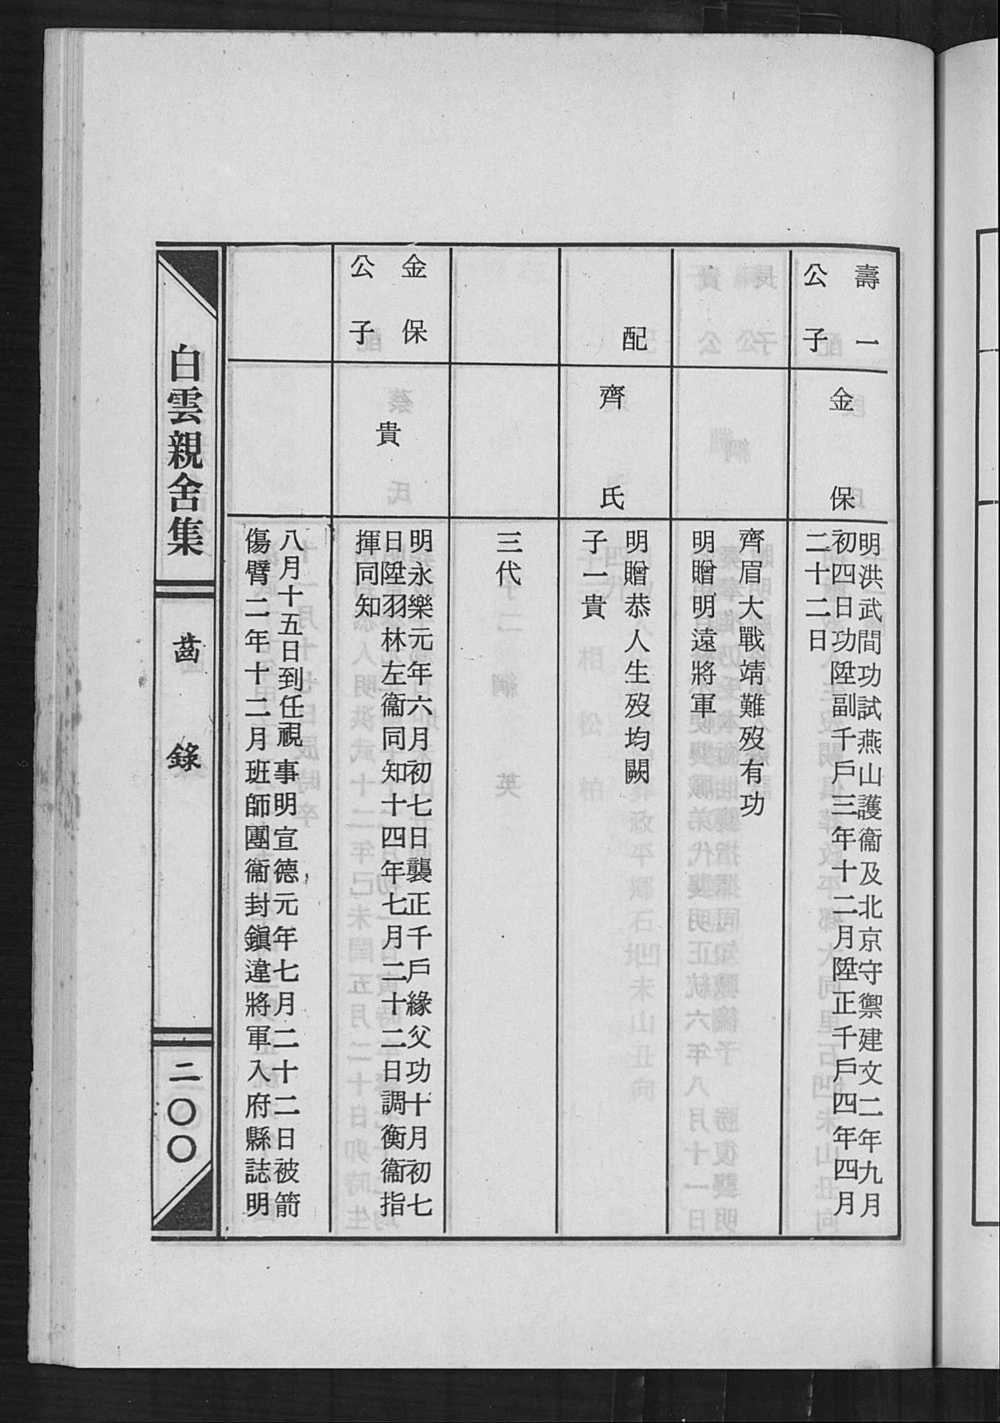 壽一
公子
金保
明洪武間功試燕山護衞及北京守禦建文二年九月
初四日功陞副千戶三年十二月陞正千戶四年四月
二十二日
齊眉大戰靖難歿有功
明贈明遠將軍
配
齊氏
明贈恭人生歿均闕
子一貴
三代
金保
公子
貴
明永樂元年六月初七日襲正千戶緣父功十月初七
日陞羽林左衞同知十四年七月二十二日調衡衞指
揮同知
八月十五日到任視事明宣德元年七月二十二日被箭
傷臂二年十二月班師團衞封鎭違將軍入府縣誌明
白雲親舍集
齒錄
二〇〇